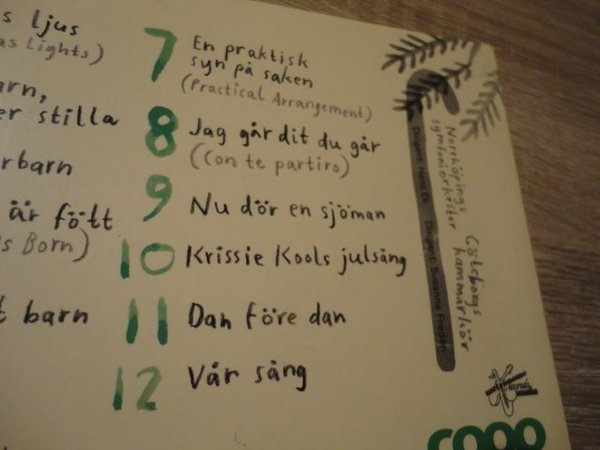 ljus
Lights)
er stilla
är fött
Born)
barn
7 En praktisk
syn på saken
(Practical Arrangement)
8 Jag går dit du går
(Con te partiro)
9 Nu dör en sjöman
10 Krissie Kools julsång
11 Dan före dan
12 Vår sång
Norrköpings
symfoniorkester
Göteborgs
kammarkör
Dirigent Susanna Fredén
coop